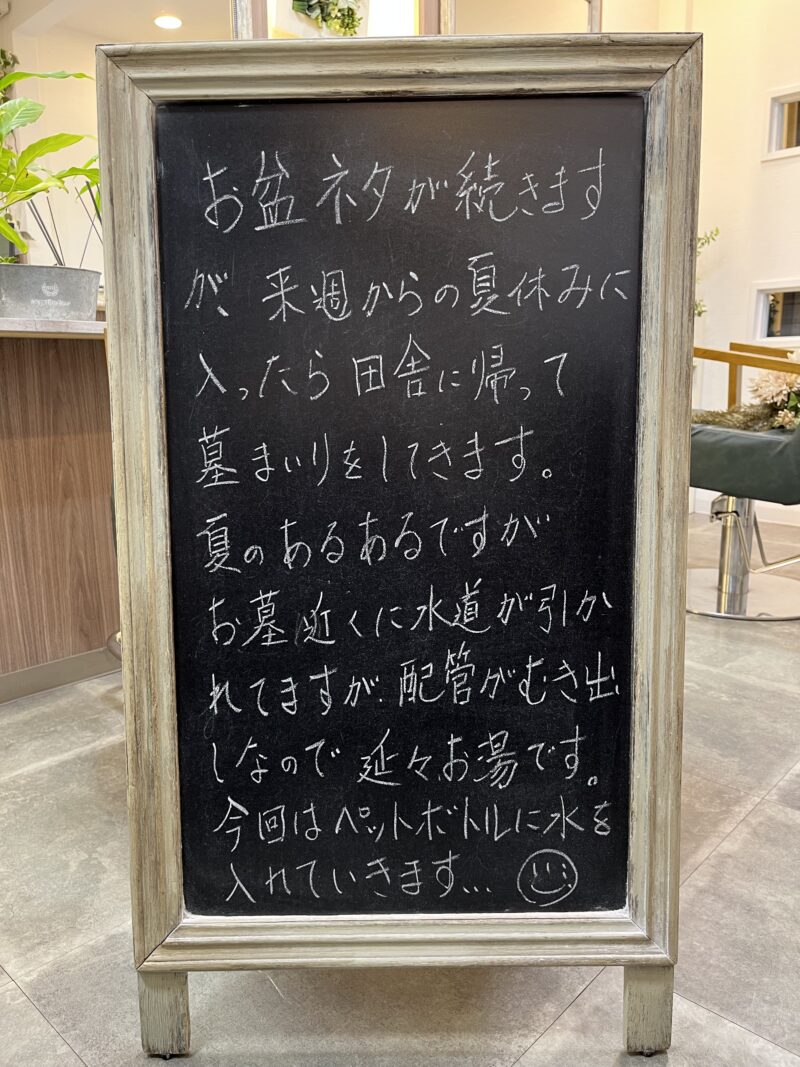 お盆ネタが続きます
が、来週からの夏休みに
入ったら田舎に帰って
墓まいりをしてきます。
夏のあるあるですが
お墓近くに水道が引か
れてますが、配管がむき出
しなので延々お湯です。
今回はペットボトルに水を
入れていきます...